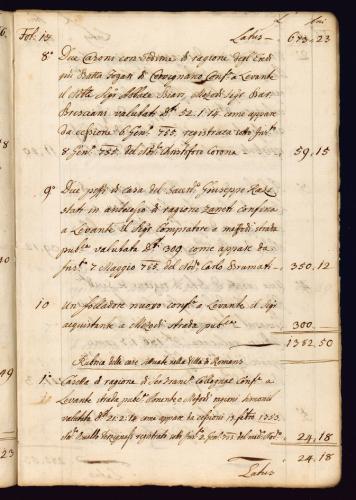 Fol: 14 Latus — 673,,23
8° Due Casoni con Sedime di ragione degl' Eredi
qm Batta Fogati di Cervegnano Conf.a a Levante
il Nobl. Sigr Abbate Bian, Mezodì Sigr Bar,
Bresciani valutati D.ti 52..1..14 come appare
da cessione 6 Gen.o 755. registrata sotto
8 Gen.o 755. del Nod.o Christofore Corona 59,,15
9° Due pezzi di casa del Giuseppe
stati in di ragione Zanoti confina
a Levante il Sigr Compratore a mezodì strada
pub.ca valutata D.ti 309 come appare da
7 Maggio 755. del Nod.o Carlo Bramati 350,,12
10 Un folladore nuovo conf.a a Levante il Sigr
acquistante a Mezodì strada pub.ca 300
1382,,50
Rubrica delle case situate nella Villa di Romans
1.o Casetta di ragione di Conf.a a
Levante strada pub.ca Ponente e Mezodì
valutata D.ti 21..2..14 come appare da cessione 13 1753
registrata sotto 2 Gen.o 755. del med.o Nod.o 24,,18
24,,18
Latus